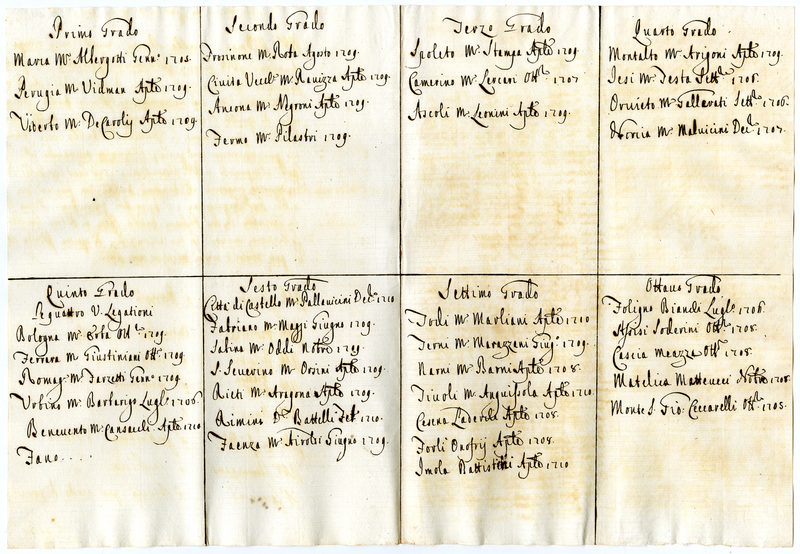 Primo Grado
Marca Mr. Albergotti Genn.o 1708.
Perugia Mr. Vidman Aple 1709.
Viterbo Mr. De Carolij Aple 1709.
Secondo Grado
Frosinone Mr. Rota Agosto 1709.
Civita Vecch.a Mr. Ravizza Aple 1709.
Ancona Mr. Negroni Aple 1709.
Fermo Mr. Pilastri 1709.
Terzo Grado
Spoleto Mr. Stampa Aple 1709.
Camerino Mr. Lercari Ott.e 1707.
Ascoli Mr. Leonini Aple 1709.
Quarto Grado.
Montalto Mr. Arigoni Aple 1709.
Iesi Mr. Testa Sett.e 1706.
Orvieto Mr. Gallarati Sett.e 1706.
Norcia Mr. Maluicini Dec.e 1707.
Quinto Grado
Le quattro V. Legationi
Bologna Mr. Erba Ott.e 1709.
Ferrara Mr. Giustiniani Ott.e 1709.
Romag.a Mr. Farzetti Genn.o 1709.
Urbino Mr. Barbarigo Lugl.o 1706.
Benevento Mr. Cansacchi Aple 1710
Fano....
Sesto Grado
Città di Castello Mr. Pallavicini Dec.e 1710
Fabriano Mr. Maggi Giugno 1709.
Sabina Mr. Oddi Nobre 1709.
S. Severino Mr. Orsini Aple 1709.
Rieti Mr. Aragona Aple 1709.
Rimini Dr. Battelli Feb.o 1710.
Faenza Mr. Airoldi Giugno 1709.
Settimo Grado
Todi Mr. Marliani Aple 1710
Terni Mr. Marazzani Giug.o 1709.
Narni Mr. Barni Aple 1708.
Tivoli Mr. Anguissola Aple 1710.
Cesena Aple 1708.
Forlì Onofrij Aple 1708.
Imola Battistini Aple 1710
Ottavo Grado
Foligno Bianchi Lugl.o 1706.
Assisi Soderini Ott.e 1708.
Cascia Meazza Ott.e 1708.
Matelica Matteucci Nobre 1708.
Monte S. Gio: Ceccarelli Ott.e 1708.